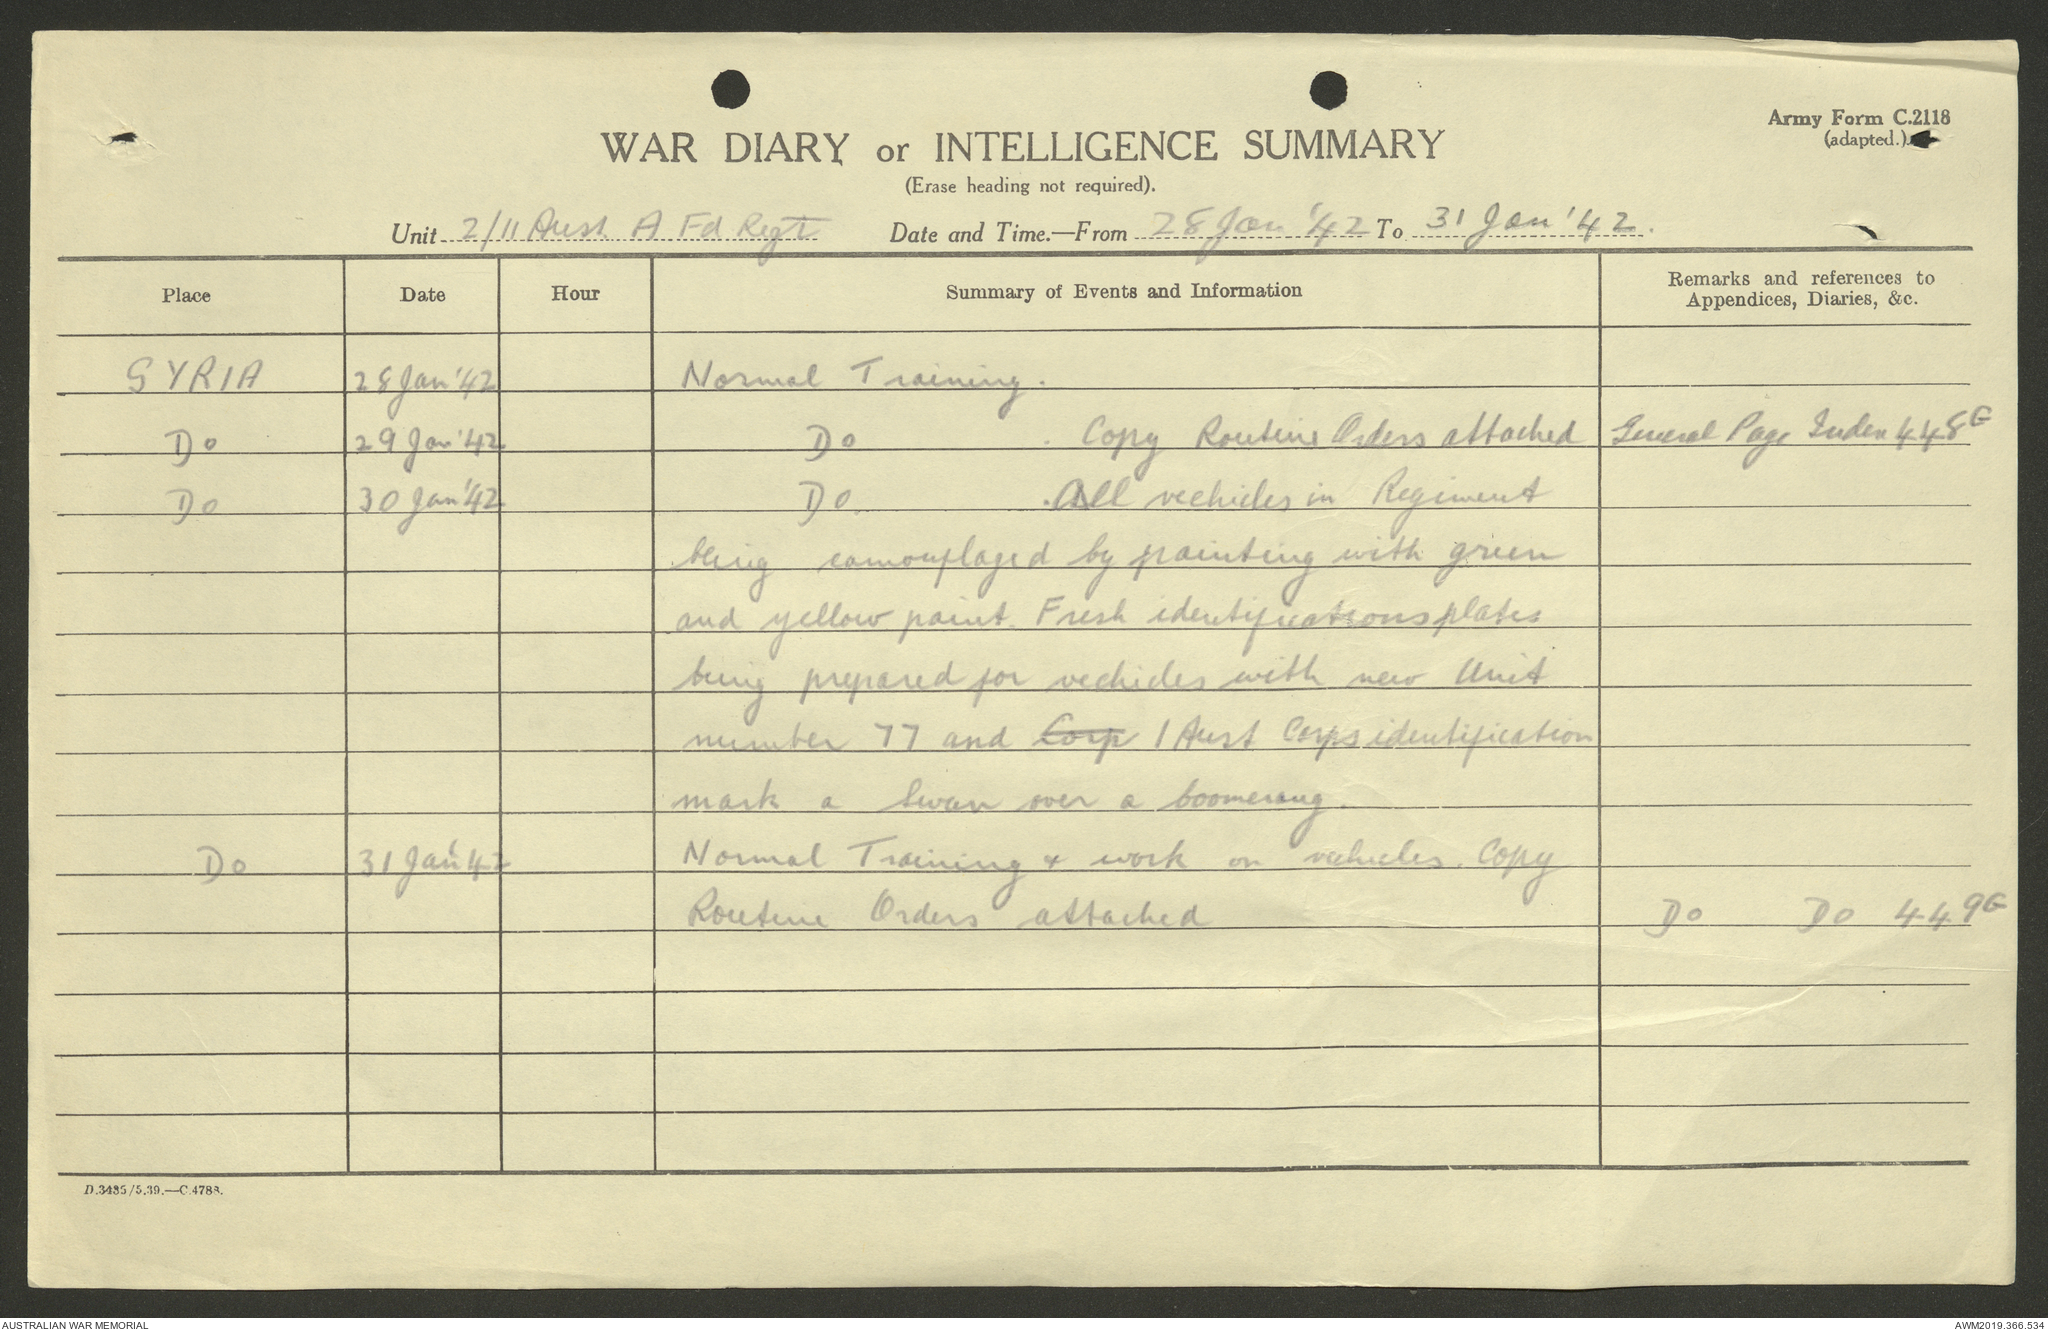 Army Form C.2118
(adapted.)
WAR DIARY or INTELLIGENCE SUMMARY
(Erase heading not required).
Unit 2/11 Aust A Fd Regt Date and Time.—From 28 Jan '42 To 31 Jan '42.
Place Date Hour Summary of Events and Information Remarks and references to
Appendices, Diaries, &c.
SYRIA 28 Jan '42 Normal Training.
Do 29 Jan '42 Do . Copy Routine Orders attached General Page Index 448G
Do 30 Jan '42 Do . All vechicles in Regiment
being camouflaged by painting with green
and yellow paint. Fresh identifications plates
being prepared for vechicles with new Unit
number 77 and Corp 1 Aust Corps identification
mark a Swan over a boomerang.
Do 31 Jan '42 Normal Training & work on vehicles. Copy
Routine Orders attached Do Do 449G
D.3435/5.39.—C.4788.
AUSTRALIAN WAR MEMORIAL AWM2019.366.534